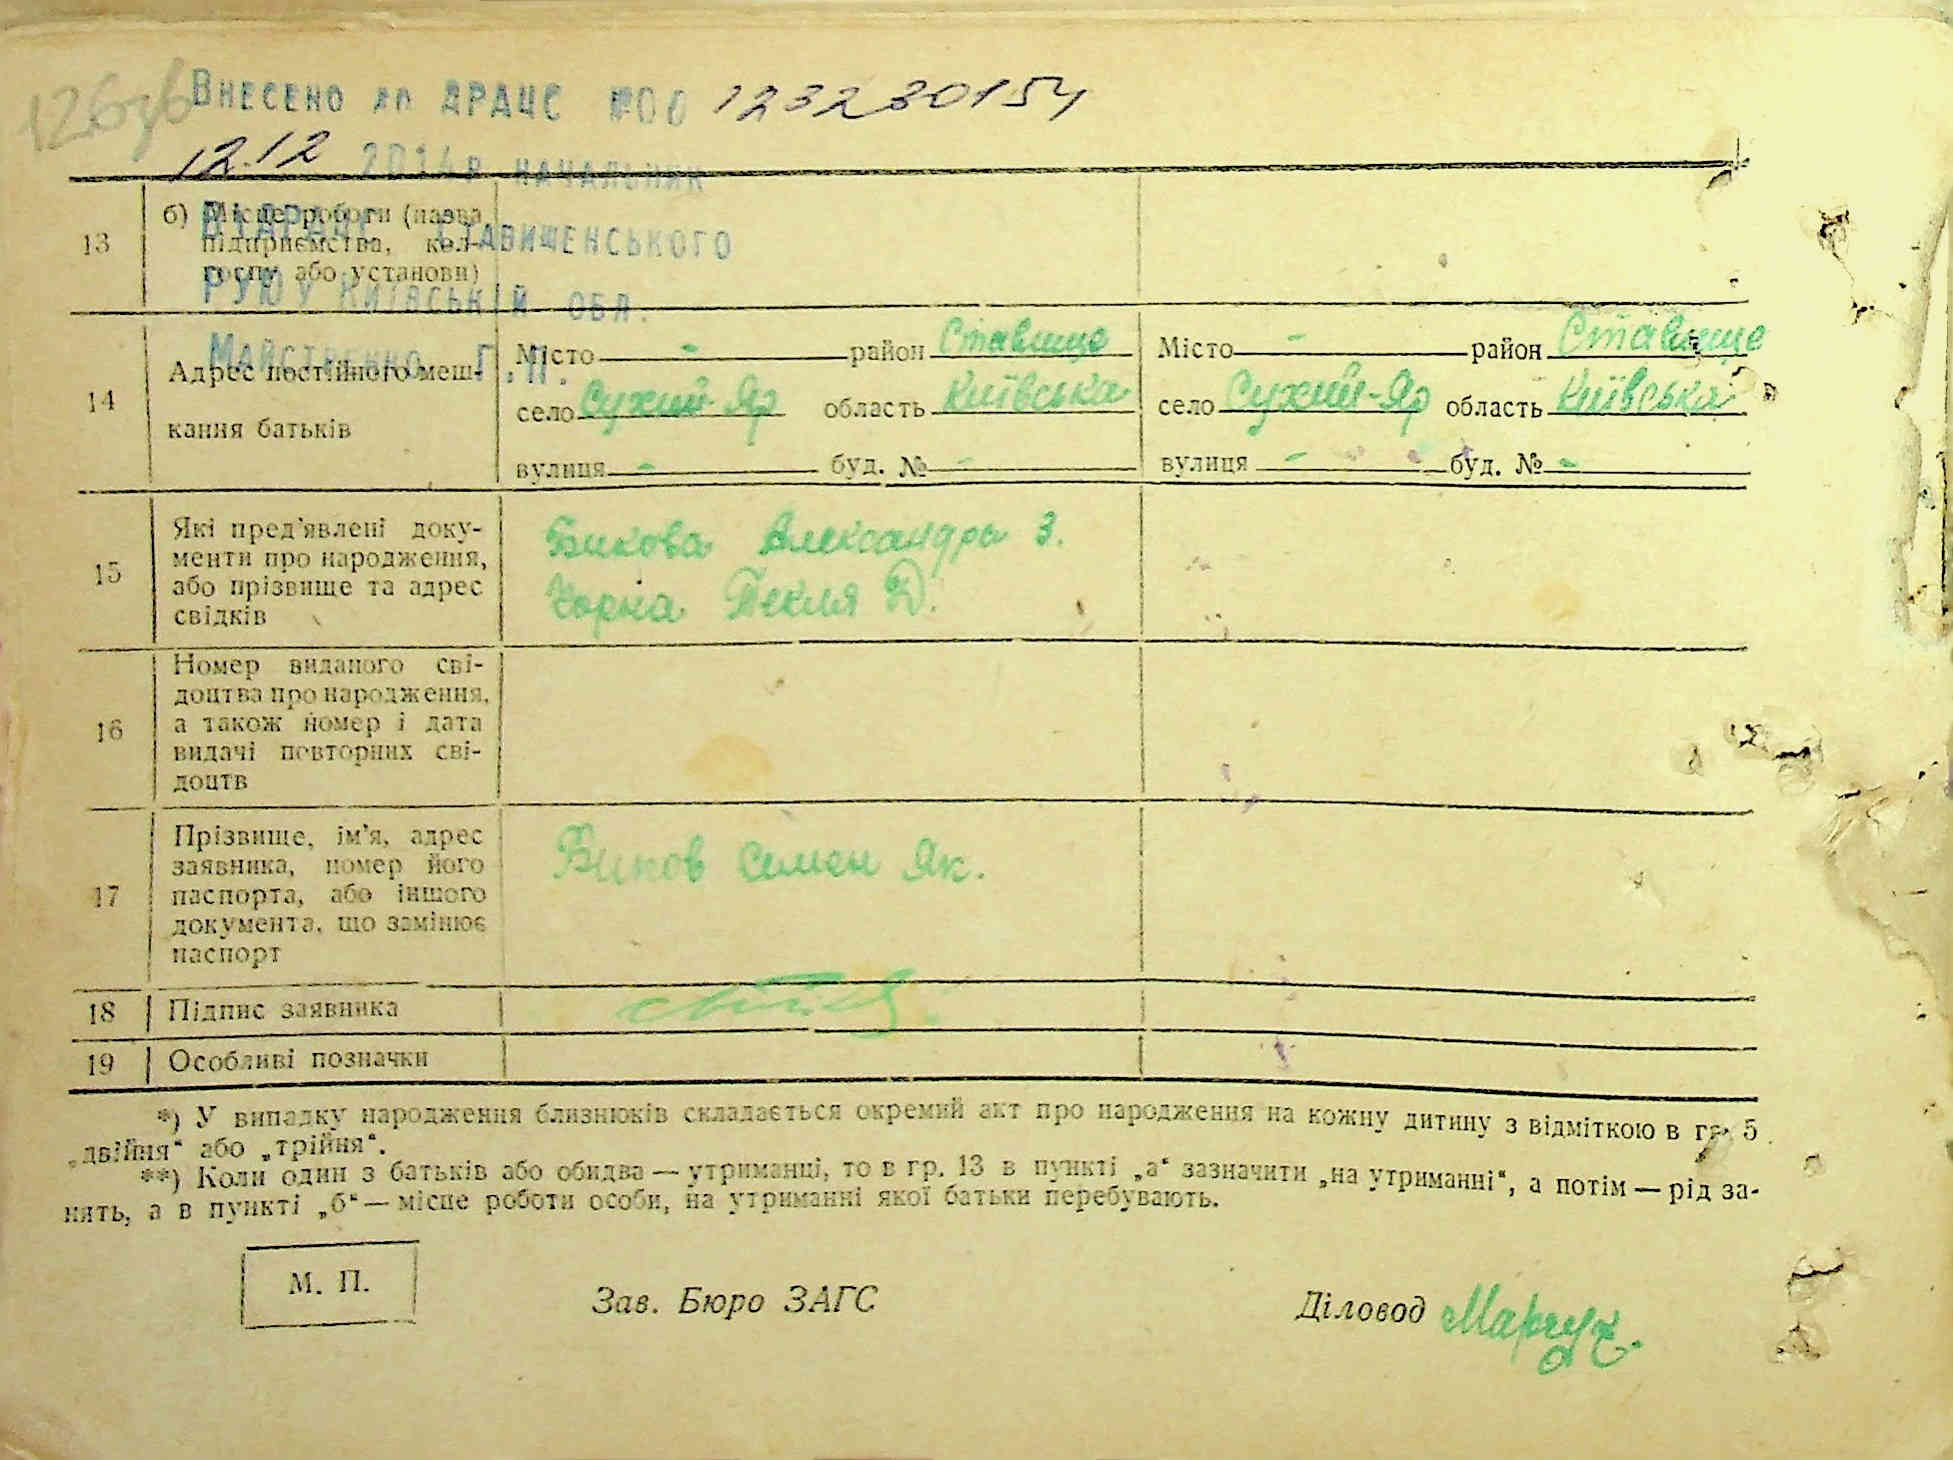 126зв
ВНЕСЕНО до ДРАЦС №00 123230154
12.12 2014р НАЧАЛЬНИК
ВДРАЦС СТАВИЩЕНСЬКОГО
РУЮ У КИЇВСЬКІЙ ОБЛ.
МАЙСТРЕНКО Г.П.
13
б) Місце роботи (назва
підприємства, кол-
госпу або установи)
14
Адрес постійного меш-
кання батьків
Місто - район Ставище
село Сухий-Яр область Київська
вулиця - буд. № -
Місто - район Ставище
село Сухий-Яр область Київська
вулиця - буд. № -
15
Які пред'явлені доку-
менти про народження,
або прізвище та адрес
свідків
Бикова Александра З.
Чорна Текля Д.
16
Номер виданого сві-
доцтва про народження,
а також номер і дата
видачі повторних сві-
доцтв
17
Прізвище, ім'я, адрес
заявника, номер його
паспорта, або іншого
документа, що замінює
паспорт
Биков Семен Як.
18
Підпис заявника
19
Особливі позначки
*) У випадку народження близнюків складається окремий акт про народження на кожну дитину з відміткою в гр. 5
„двійня“ або „трійня“.
**) Коли один з батьків або обидва — утриманці, то в гр. 13 в пункті „а“ зазначити „на утриманні“, а потім — рід за-
нять, а в пункті „б“ — місце роботи особи, на утриманні якої батьки перебувають.
М. П.
Зав. Бюро ЗАГС
Діловод